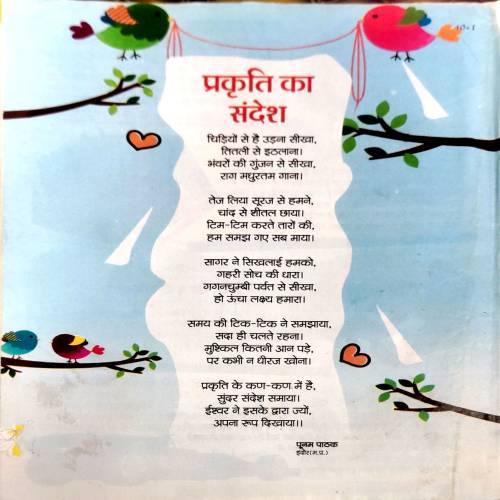 प्रकृति का
संदेश
चिड़ियों से है उड़ना सीखा,
तितली से इठलाना।
भंवरों की गुंजन से सीखा,
राग मधुरतम गाना।
तेज लिया सूरज से हमने,
चांद से शीतल छाया।
टिम-टिम करते तारों की,
हम समझ गए सब माया।
सागर ने सिखलाई हमको,
गहरी सोच की धारा।
गगनचुम्बी पर्वत से सीखा,
हो ऊंचा लक्ष्य हमारा।
समय की टिक-टिक ने समझाया,
सदा ही चलते रहना।
मुश्किल कितनी आन पड़े,
पर कभी न धीरज खोना।
प्रकृति के कण-कण में है,
सुंदर संदेश समाया।
ईश्वर ने इसके द्वारा ज्यों,
अपना रूप दिखाया।।
पूनम पाठक
इंदौर(म.प्र.)